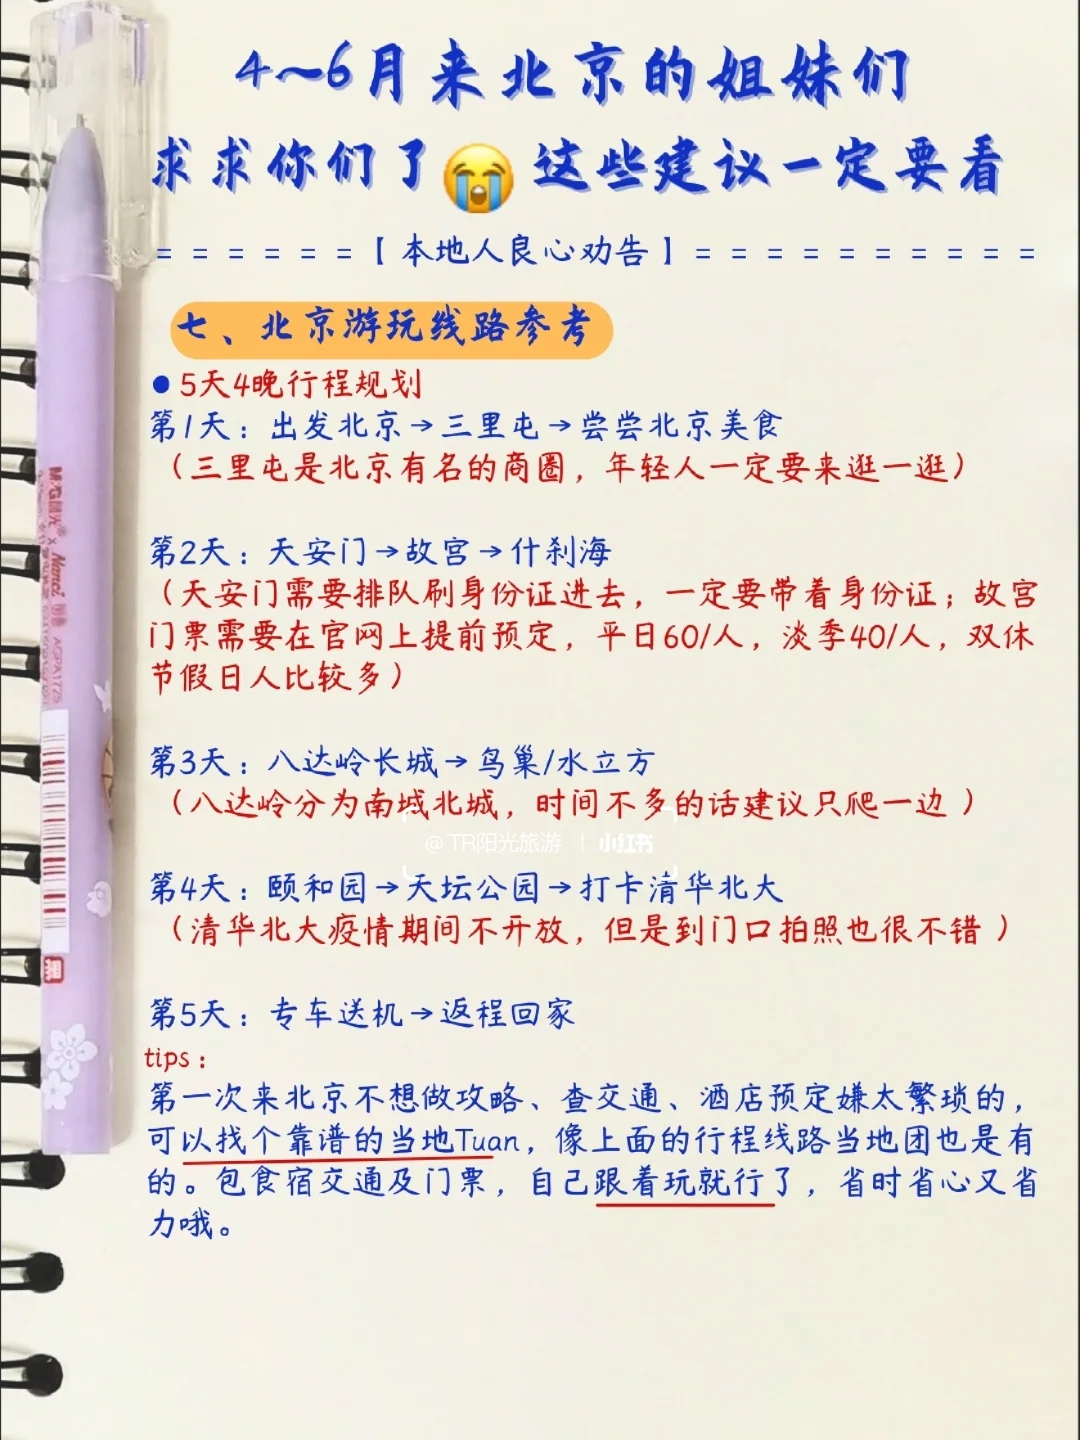 4～6月来北京的姐妹们
求求你们了😭这些建议一定要看
======【本地人良心劝告】==========
七、北京游玩线路参考
●5天4晚行程规划
第1天：出发北京→三里屯→尝尝北京美食
（三里屯是北京有名的商圈，年轻人一定要来逛一逛）
第2天：天安门→故宫→什刹海
（天安门需要排队刷身份证进去，一定要带着身份证；故宫
门票需要在官网上提前预定，平日60/人，淡季40/人，双休
节假日人比较多）
第3天：八达岭长城→鸟巢/水立方
（八达岭分为南城北城，时间不多的话建议只爬一边）
@TR阳光旅游 | 小红书
第4天：颐和园→天坛公园→打卡清华北大
（清华北大疫情期间不开放，但是到门口拍照也很不错）
第5天：专车送机→返程回家
tips：
第一次来北京不想做攻略、查交通、酒店预定嫌太繁琐的，
可以找个靠谱的当地Tuan，像上面的行程线路当地团也是有
的。包食宿交通及门票，自己跟着玩就行了，省时省心又省
力哦。
M&G晨光® x Nanci
AGPA1725